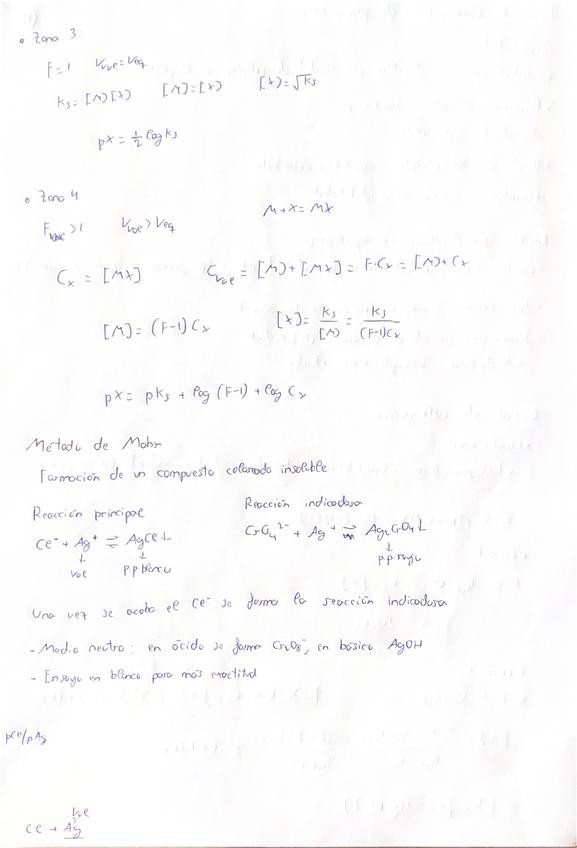 • Zona 3
F=1 Vvol = Veq
Ks = [M][X] [M]=[X] [X]=√Ks
pX = 1/2 log Ks
• Zona 4
M+X = MX
F >1 Vvol > Veq
Cx = [MX] Cvol = [M]+[MX] = F·Cx = [M]+Cx
[M] = (F-1) Cx [X] = Ks/[M] = Ks/(F-1)Cx
pX = pKs + log (F-1) + log Cx
Método de Mohr
Formación de un compuesto coloreado insoluble
Reacción principal Reacción indicadora
Cl⁻ + Ag⁺ ⇌ AgCl↓ CrO₄²⁻ + Ag⁺ ⇌ Ag₂CrO₄↓
↓ ↓ ↓
vol pp blanco pp rojo
Una vez se acaba el Cl⁻ se forma la reacción indicadora
- Medio neutro: en ácido se forma , en básico AgOH
- Ensayo en blanco para más exactitud
pCl/pAg
vol
↑
Cl + Ag